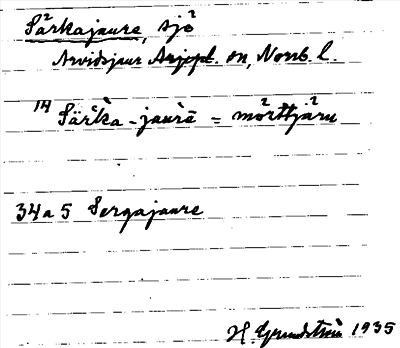 Särkajaure, sjö
Arvidsjaur Arjepl. sn, Norrb. l.
14 Särka-jaurē = mörttjärn
34a5 Sergajaure
H Grundström 1935